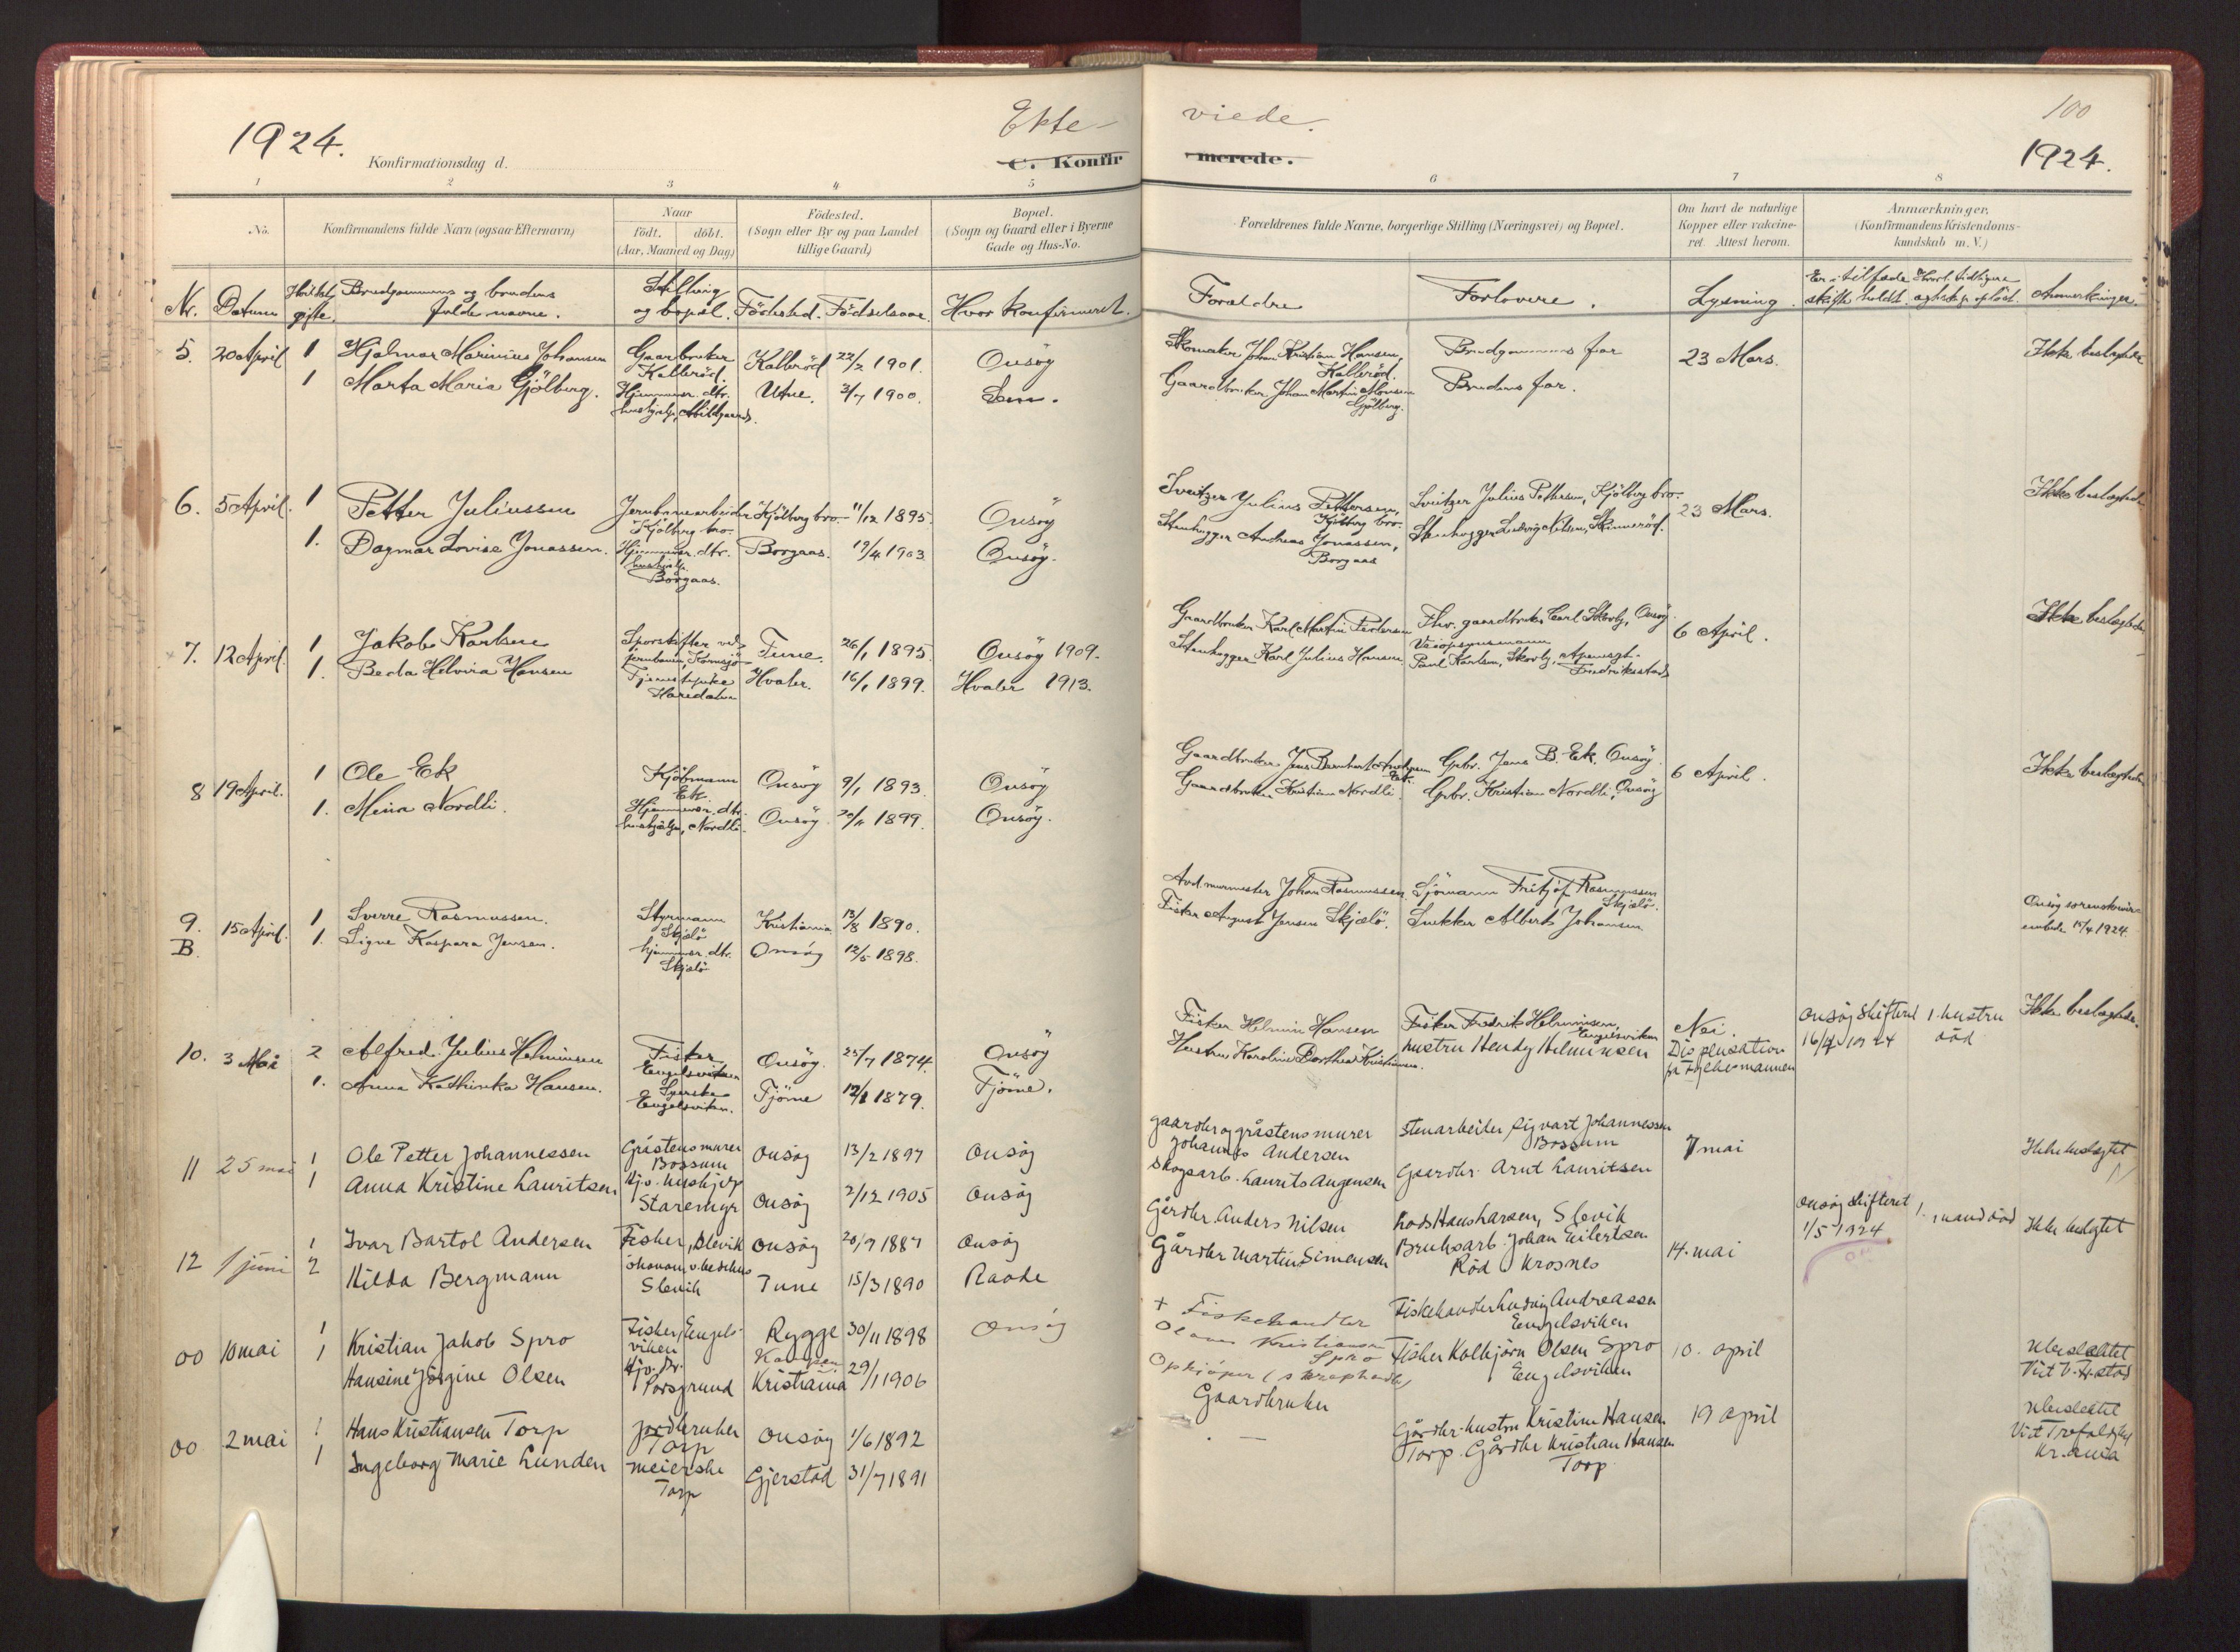 1924.
Konfirmationsdag d.
Ekte-
C. Konfir
1 2 3 4 5
No.
Konfirmandens fulde Navn (ogsaa Efternavn)
Naar
født. døbt.
(Aar, Maaned og Dag)
Fødested.
(Sogn eller By og paa Landet
tillige Gaard)
Bopæl.
(Sogn og Gaard eller i Byerne
Gade og Hus-No.
Nr. Datum Hvilket gifte. Brudgommens og brudens fulde navne. Stilling og bopæl. Födested. Födselsaar. Hvor konfirmert.
5. 20 April 1 Hjalmar Marinius Johansen Gaarbruker Kallerød. Kallerød 22/2 1901. Onsøy
1 Marta Maria Gjølberg. Hjemmev. dtr. Utne. 3/7 1900.
6. 5 April. 1 Petter Juliussen Jernbanearbeider Kjölberg bro. Kjölberg bro. 11/12 1895. Onsöy
1. Dagmar Lovise Jonassen. Hjemmev. dtr. hushjelp. Borgaas. Borgaas. 19/4 1903. Onsöy.
7. 12 April. 1 Jakob Karlsen Sporskifter ved jernbanen, Kornsjø Tune. 26/1 1895. Onsöy 1909.
1. Beda Helvira Hansen Tjenestepike Haredalen Hvaler. 16/1 1899. Hvaler 1913.
8 19 April. 1 Ole Ek Kjöbmann Ek. Onsöy 9/1 1893. Onsöy
1. Mina Nordli. Hjemmev. dtr. hushjælp, Nordli. Onsöy 1899. Onsöy.
9. B. 15 April. 1 Sverre Rasmussen. Styrmann Skjælö Kristiania 13/8 1890.
1. Signe Kaspara Jensen. hjemmev. dtr. Skjælö Onsöy 12/5 1898.
10. 3 Mai 2 Alfred Julius Helminsen Fisker Engelsviken Onsöy. 25/7 1874. Onsöy
1. Anna Kathinka Hansen. Syerske Engelsviken. Tjöme 1879. Tjöme.
11 25 mai 1 Ole Petter Johannessen Gråstensmurer Bossum Onsøy 13/2 1897 Onsøy
1 Anna Kristine Lauritsen Hj.v. hushjelp Staremyr Onsøy 2/12 1905 Onsøy
12 1 juni 1 Ivar Bartol Andersen Fisker, Slevik Onsøy 20/9 1887 Onsøy
2 Hilda Bergmann Slevik Tune 15/3 1890 Raade
00 10 mai 1 Kristian Jakob Spro Fisker, Engelsviken Rygge 30/11 1898 Onsøy
1 Hansine Jørgine Olsen Hj.v. Dr. Porsgrund Kampen Kristiania 29/1 1906
00 2 mai 1 Hans Kristiansen Torp jordbruker Torp Onsøy 1/6 1892
1 Ingeborg Marie Lunden meierske Torp Gjerstad 31/7 1891
viede.
100
merede.
1924.
6 7 8
Forældrenes fulde Navne, borgerlige Stilling (Næringsvei) og Bopæl.
Om havt de naturlige
Kopper eller vakcine-
ret. Attest herom.
Anmærkninger.
(Konfirmandens Kristendoms-
kundskab m. V.)
Foreldre Forlovere. Lysning. Er i tilfælde skifte holdt. Hvorl. tidligere egtskap oplöst. Anmerkninger.
Skomaker Johan Kristian Hansen, Kallerød. Brudgommens far 23 Mars. Ikke beslegtede
Gaardbruker Johan Martin Monsen Gjølberg. Brudens far.
Sveitzer Julius Pettersen, Kjölberg bro. Sveitzer Julius Pettersen, Kjölberg bro. 23 Mars. Ikke beslegtede
Stenhugger Andreas Jonassen, Borgaas Stenhugger Ludvig Nilsen, Skinneröd.
Gaardbruker Karl Martin Pedersen Fhv. gaardbruker Carl Skovly, Onsöy 6 April. Ikke beslegtede
Stenhugger Karl Julius Hansen. Paul Karlsen, Skovly, Fredrikstad
Gaardbruker Jens Bernhart Andersen Ek. Gpbr. Jens B. Ek. Onsöy. 6 April. Ikke beslegtede
Gaardbruker Kristian Nordli. Gpbr. Kristian Nordli, Onsöy
Avd. murmester Johan Rasmussen. Sjömann Fritjof Rasmussen Skjælö. Onsöy sorenskriverembede 15/4 1924.
Fisker August Jensen Skjælö. Snekker Albert Johansen
Fisker Helmin Hansen Fisker Fredrik Helminsen, Engelsviken Nei. Dispensation fr. Fylkesmannen Onsøy Skifteret 16/4 1924 1. hustru död Ikke beslegtede.
Hustru Karoline Dorthea Kristiansen. hustru Hendy Helminsen
gaardbr og gråstensmurer Johannes Andersen Stenarbeider Sigvart Johannessen Bossum 7 mai Ikke beslegtet
Skogsarb. Laurits Augensen Gaardbr. Arnt Lauritsen
Gårdbr. Anders Nilsen Lods Hans Larsen, Slevik 14. mai Onsøy Skifteret 1/5 1924 1. mand död Ikke beslegtet
Gårdbr Martin Simensen Bruksarb. Johan Eilertsen Röd Krosnes
+ Fiskehandler Olaus Kristiansen Spro Fiskehandler Ludvig Andreassen Engelsviken 10. april Ubeslektet
Opkjøper (skraphandler) Fisker Kolbjørn Olsen Spro Engelsviken Viet V. Fr.stad
Gaardbruker Gårdbr.hustru Kristine Hansen Torp. Gårdbr Kristian Hansen Torp 19 april Ubeslektet Viet Trefoldighet Kr.ania
—